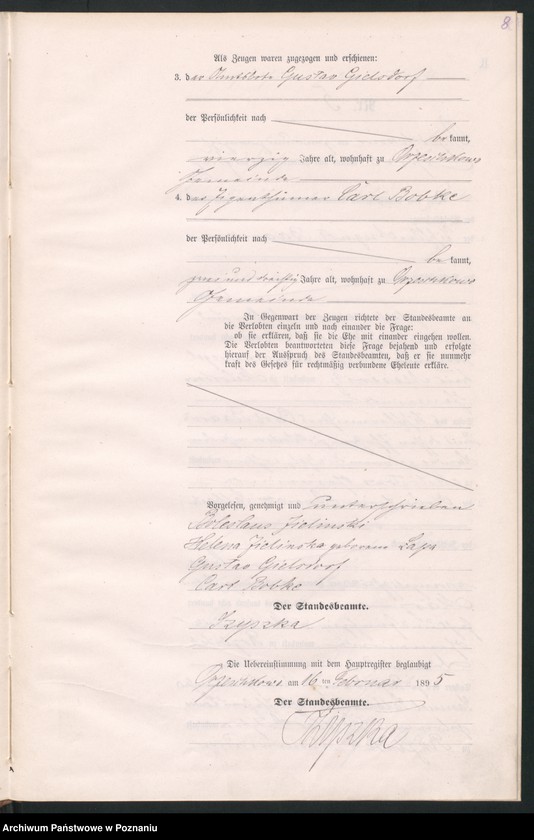 8
Als Zeugen waren zugezogen und erschienen:
3. der Amtsbote Gustav Gielsdorf
der Persönlichkeit nach
bekannt,
vierzig Jahre alt, wohnhaft zu
Gemeinde
4. der Eigenthümer Carl Bobke
der Persönlichkeit nach
bekannt,
Jahre alt, wohnhaft zu
Gemeinde
In Gegenwart der Zeugen richtete der Standesbeamte an
die Verlobten einzeln und nach einander die Frage:
ob sie erklären, daß sie die Ehe mit einander eingehen wollen.
Die Verlobten beantworteten diese Frage bejahend und erfolgte
hierauf der Ausspruch des Standesbeamten, daß er sie nunmehr
kraft des Gesetzes für rechtmäßig verbundene Eheleute erkläre.
Vorgelesen, genehmigt und unterschrieben
Boleslaus Zielinski
Helena Zielinska geborene
Gustav Gielsdorf
Carl Bobke
Der Standesbeamte.
Die Uebereinstimmung mit dem Hauptregister beglaubigt
am 16 ten Februar 1895
Der Standesbeamte.
Archiwum Państwowe w Poznaniu